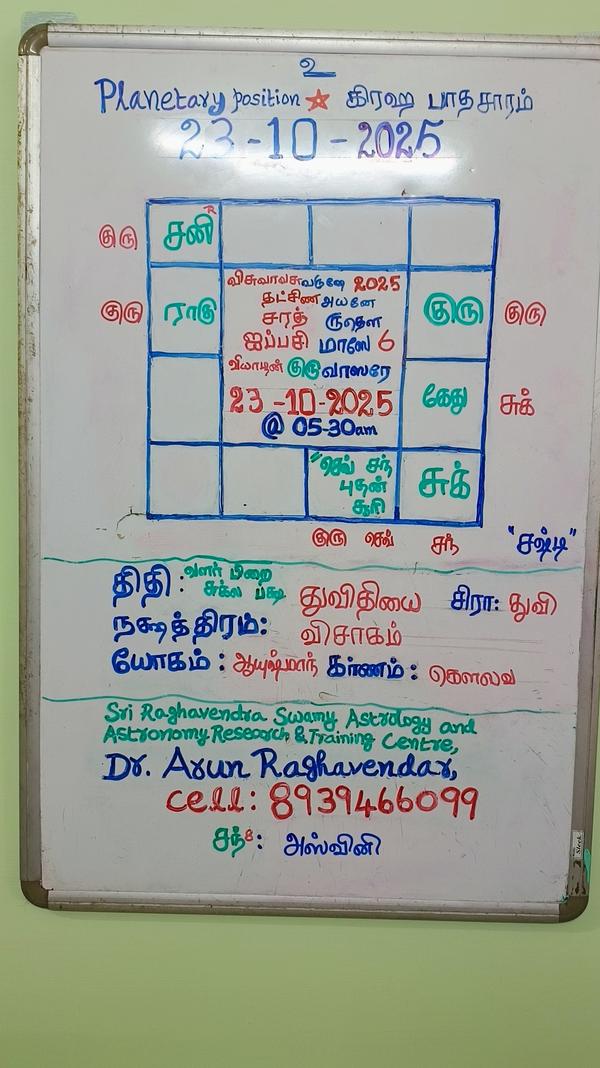 உ
Planetary position ☆ கிரஹ பாதசாரம்
23-10-2025
குரு சனி R
குரு ராகு
விசுவாவசுவருஷே 2025
தட்சிண அயனே
சரத் ருதௌ
ஐப்பசி மாஸே 6
வியாழன் குருவாஸரே
23-10-2025
@ 05-30am
குரு குரு
கேது சுக்
"செவ் சந்
புதன்
சூரி
சுக்
குரு செவ் சந் "சஷ்டி"
திதி : வளர் பிறை
சுக்ல பக்ஷ துவிதியை சிரா: துவி
நக்ஷத்திரம்: விசாகம்
யோகம் : ஆயுஷ்மாந் கர்ணம் : கௌலவ
Sri Raghavendra Swamy Astrology and
Astronomy Research & Training Centre,
Dr. Arun Raghavendar,
cell: 8939466099
சந்8: அஸ்வினி